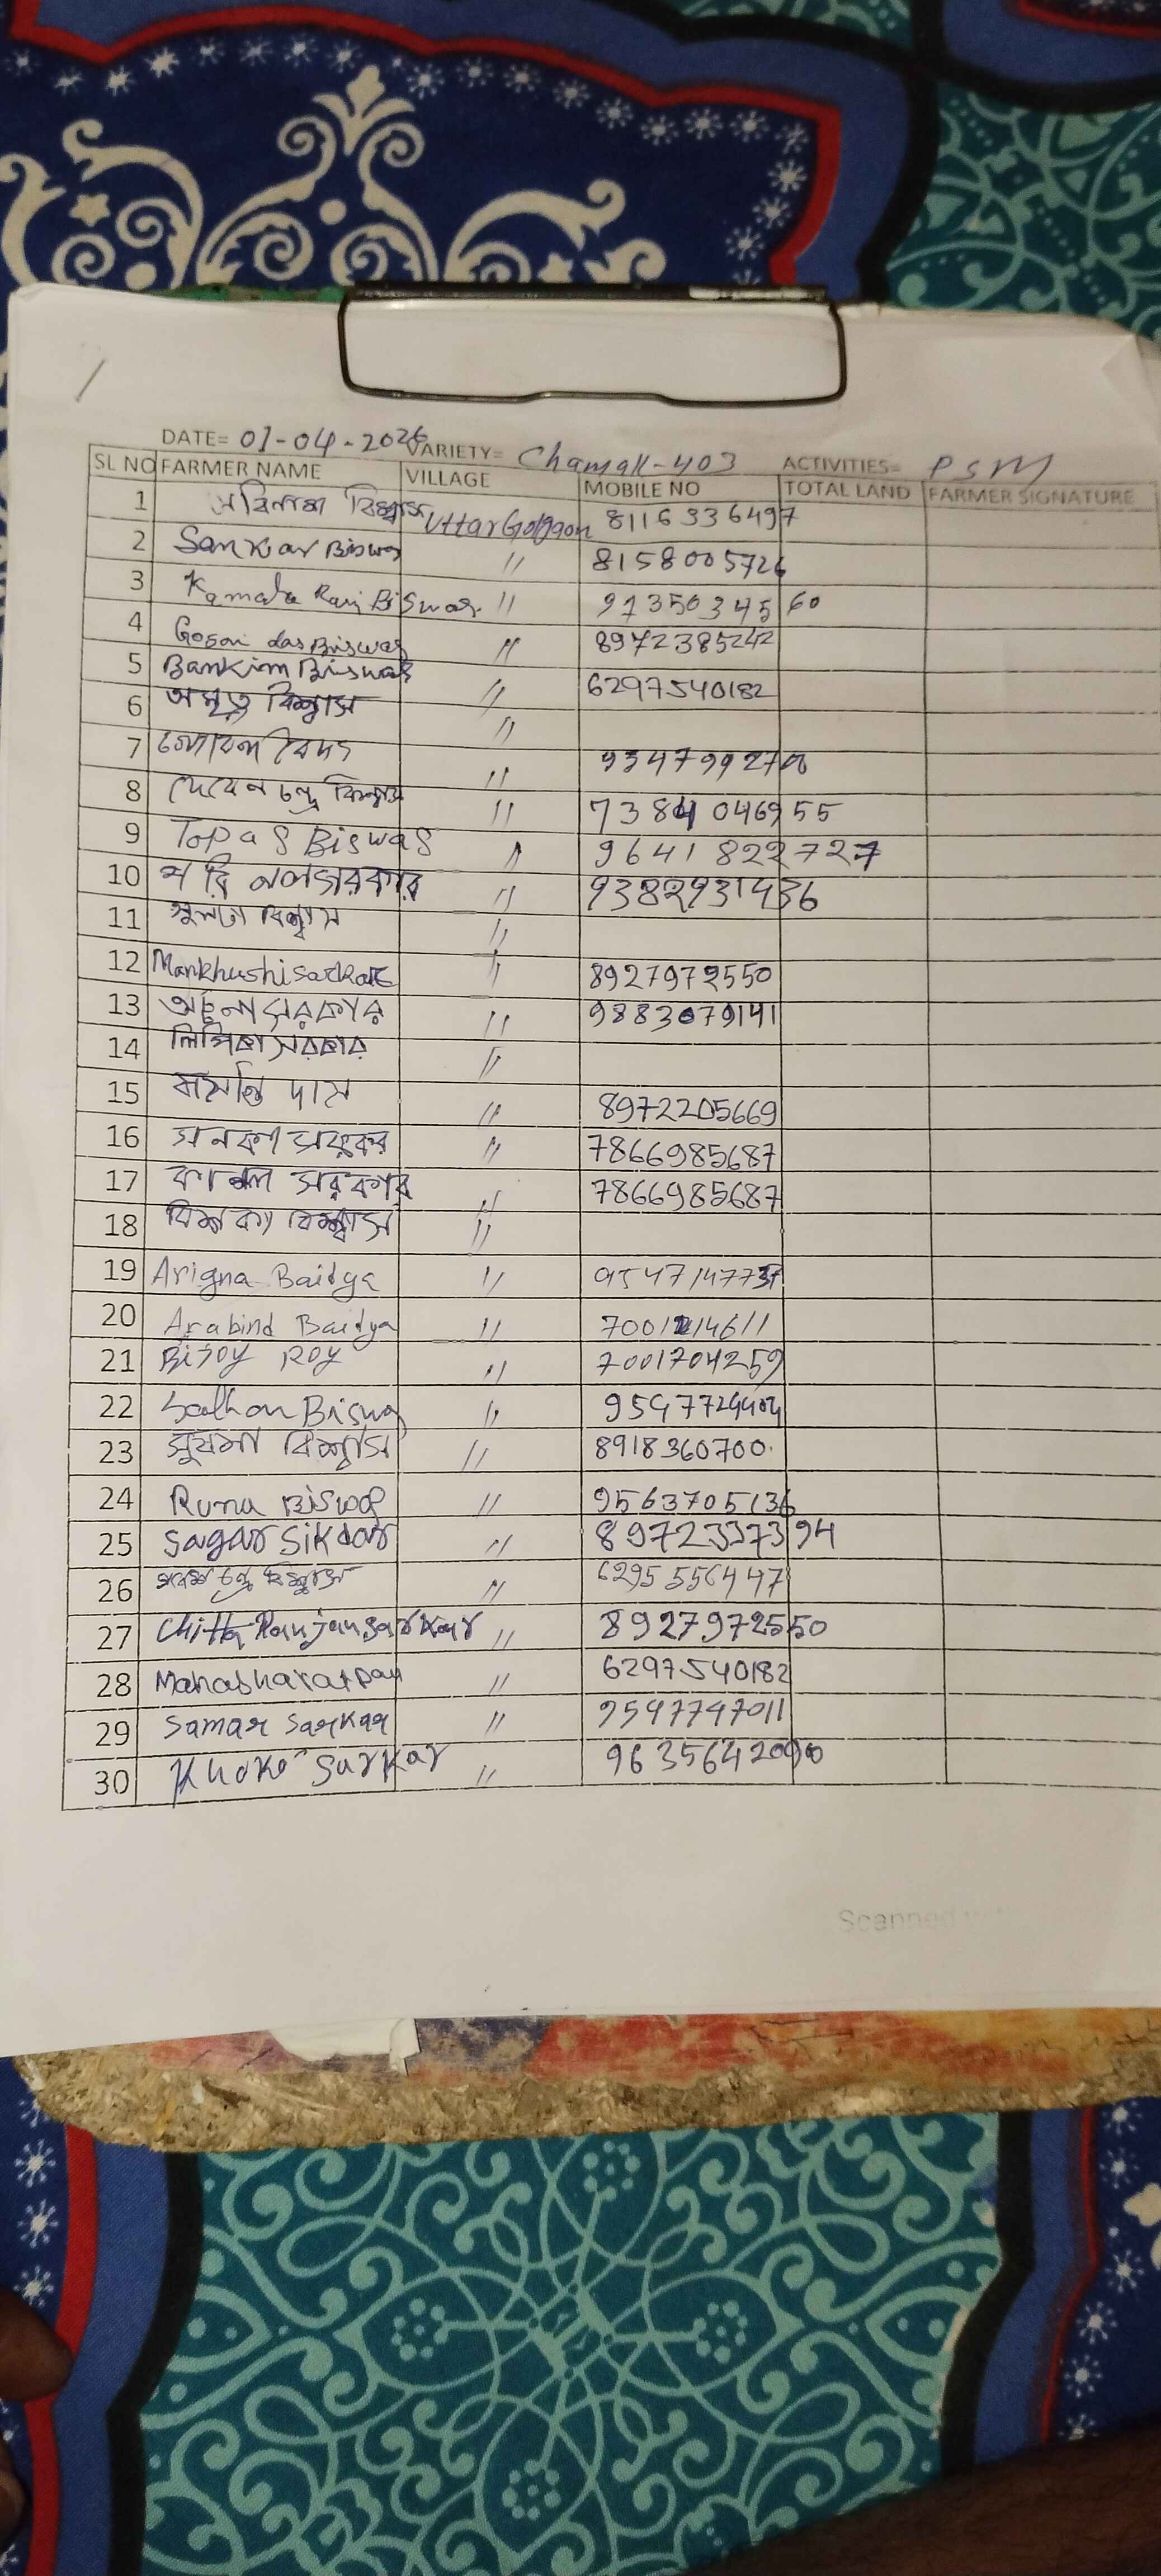 DATE= 01-04-2026 VARIETY= Chamak-403 ACTIVITIES= PSM
SL NO FARMER NAME VILLAGE MOBILE NO TOTAL LAND FARMER SIGNATURE
1 বিশ্বাস UttarGolgaon 8116336497
2 Sankar Biswas " 8158005726
3 Kamala Rani Biswas " 9735034560
4 Gosai das Biswas " 8972385242
5 Bankim Biswas " 6297540182
6 অমৃত বিশ্বাস "
7 বৈদ্য "
8 দেবেন চন্দ্র বিশ্বাস " 7384046955
9 Topas Biswas " 9641822727
10 সরকার " 9382931436
11 বিশ্বাস "
12 Mankhushi sarkar " 8927972550
13 অর্চনা সরকার " 9883079141
14 লিপিকা সরকার "
15 বাসন্তি দাস " 8972205669
16 সনকা সরকার " 7866985687
17 সরকার " 7866985687
18 বিশ্বাস "
19 Arigna Baidya "
20 Arabind Baidya "
21 Bijoy Roy " 7001704259
22 Sadhan Biswas "
23 সুষমা বিশ্বাস " 8918360700
24 Runa Biswas " 9563705136
25 Sagar Sikdar " 8972337394
26 চন্দ্র বিশ্বাস " 6295556447
27 Chitta Ranjan Sarkar " 8927972550
28 Mahabharat Das " 6297540182
29 Samar Sarkar " 9547747011
30 Khoko Sarkar "
Scanned